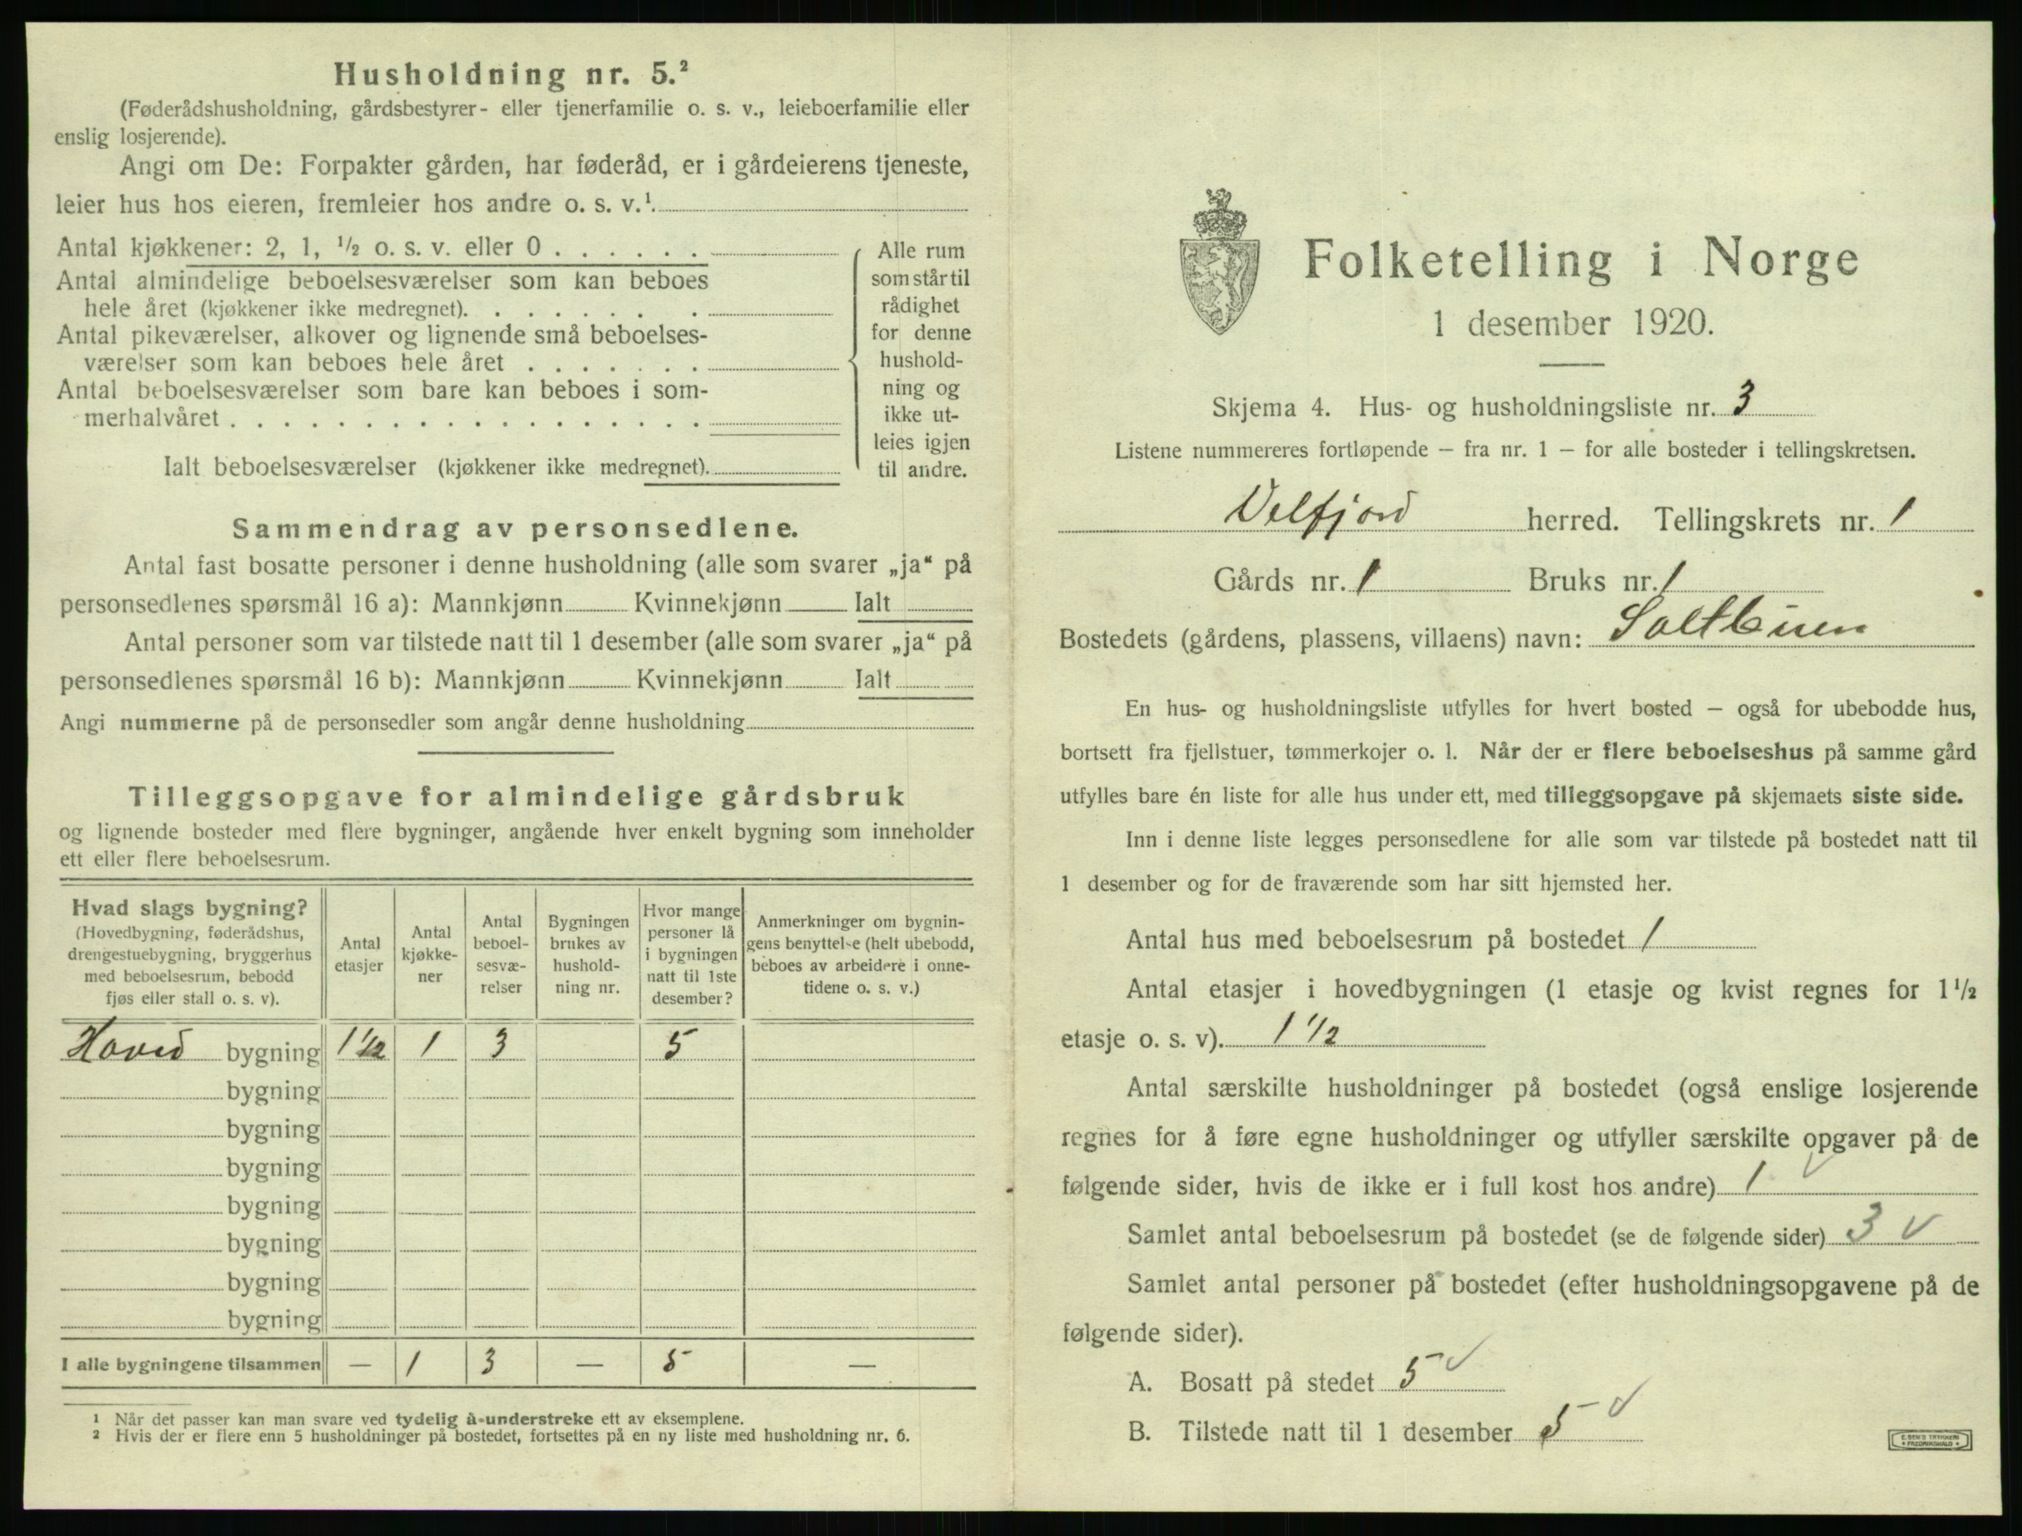 Husholdning nr. 5.²
(Føderådshusholdning, gårdsbestyrer- eller tjenerfamilie o. s. v., leieboerfamilie eller
enslig losjerende).
Angi om De: Forpakter gården, har føderåd, er i gårdeierens tjeneste,
leier hus hos eieren, fremleier hos andre o. s. v.¹.
Antal kjøkkener: 2, 1, ½ o. s. v. eller 0 . . . . . .
Antal almindelige beboelsesværelser som kan beboes
hele året (kjøkkener ikke medregnet). . . . . . . .
Antal pikeværelser, alkover og lignende små beboelses-
værelser som kan beboes hele året . . . . . . .
Antal beboelsesværelser som bare kan beboes i som-
merhalvåret . . . . . . . . . . . . . . . . . .
Ialt beboelsesværelser (kjøkkener ikke medregnet).
Alle rum
som står til
rådighet
for denne
hushold-
ning og
ikke ut-
leies igjen
til andre.
Sammendrag av personsedlene.
Antal fast bosatte personer i denne husholdning (alle som svarer „ja“ på
personsedlenes spørsmål 16 a): Mannkjønn Kvinnekjønn Ialt
Antal personer som var tilstede natt til 1 desember (alle som svarer „ja“ på
personsedlenes spørsmål 16 b): Mannkjønn Kvinnekjønn Ialt
Angi nummerne på de personsedler som angår denne husholdning
Tilleggsopgave for almindelige gårdsbruk
og lignende bosteder med flere bygninger, angående hver enkelt bygning som inneholder
ett eller flere beboelsesrum.
Hvad slags bygning?
(Hovedbygning, føderådshus,
drengestuebygning, bryggerhus
med beboelsesrum, bebodd
fjøs eller stall o. s. v).
Antal
etasjer
Antal
kjøkke-
ner
Antal
beboel-
sesvæ-
relser
Bygningen
brukes av
hushold-
ning nr.
Hvor mange
personer lå
i bygningen
natt til 1ste
desember?
Anmerkninger om bygnin-
gens benyttelse (helt ubebodd,
beboes av arbeidere i onne-
tidene o. s. v.)
Hoved bygning 1 ½ 1 3 5
bygning
bygning
bygning
bygning
bygning
bygning
bygning
I alle bygningene tilsammen — 1 3 — 5 —
¹ Når det passer kan man svare ved tydelig å understreke ett av eksemplene.
² Hvis der er flere enn 5 husholdninger på bostedet, fortsettes på en ny liste med husholdning nr. 6.
Folketelling i Norge
1 desember 1920.
Skjema 4. Hus- og husholdningsliste nr. 3
Listene nummereres fortløpende – fra nr. 1 – for alle bosteder i tellingskretsen.
Velfjord herred. Tellingskrets nr. 1
Gårds nr. 1 Bruks nr. 1
Bostedets (gårdens, plassens, villaens) navn: Saltbuen
En hus- og husholdningsliste utfylles for hvert bosted – også for ubebodde hus,
bortsett fra fjellstuer, tømmerkojer o. l. Når der er flere beboelseshus på samme gård
utfylles bare én liste for alle hus under ett, med tilleggsopgave på skjemaets siste side.
Inn i denne liste legges personsedlene for alle som var tilstede på bostedet natt til
1 desember og for de fraværende som har sitt hjemsted her.
Antal hus med beboelsesrum på bostedet 1
Antal etasjer i hovedbygningen (1 etasje og kvist regnes for 1½
etasje o. s. v). 1 ½
Antal særskilte husholdninger på bostedet (også enslige losjerende
regnes for å føre egne husholdninger og utfyller særskilte opgaver på de
følgende sider, hvis de ikke er i full kost hos andre) 1 ✓
Samlet antal beboelsesrum på bostedet (se de følgende sider) 3 ✓
Samlet antal personer på bostedet (efter husholdningsopgavene på de
følgende sider).
A. Bosatt på stedet 5 ✓
B. Tilstede natt til 1 desember 5 ✓